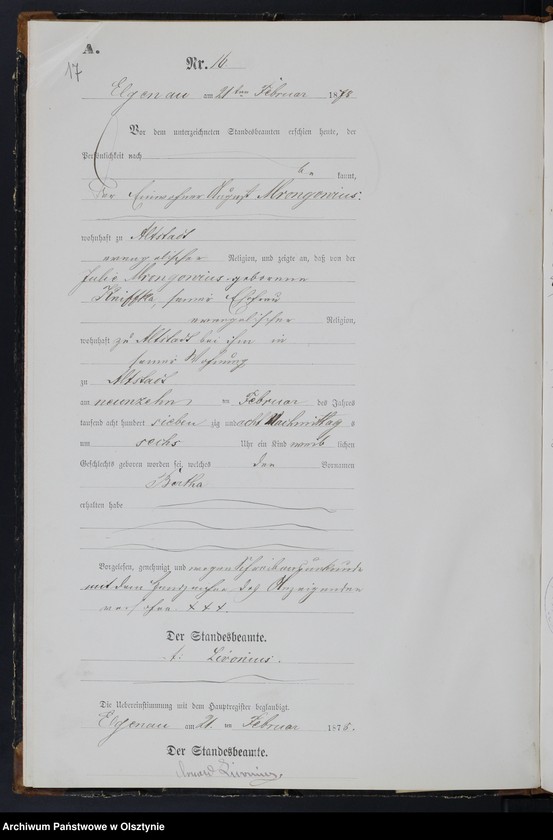 A.
17
Nr. 16
Elgenau am 21ten Februar 1878
Vor dem unterzeichneten Standesbeamten erschien heute, der
Persönlichkeit nach
be kannt,
Der Einwohner August Mrongowius.
wohnhaft zu Altstadt
evangelischer Religion, und zeigte an, daß von der
Julie Mrongowius geborenen
seiner Ehefrau
evangelischer Religion,
wohnhaft zu Altstadt bei ihm in
seiner Wohnung
zu Altstadt
am neunzehn ten Februar des Jahres
tausend acht hundert sieben zig und acht Nachmittag s
um sechs Uhr ein Kind weib lichen
Geschlechts geboren worden sei, welches den Vornamen
Bertha
erhalten habe
Vorgelesen, genehmigt und wegen Schreibensunkunde
mit dem Handzeichen des Anzeigenden
versehen + + +.
Der Standesbeamte.
Livonius.
Die Uebereinstimmung mit dem Hauptregister beglaubigt.
Elgenau am 21. ten Februar 1878.
Der Standesbeamte.
Livonius.
Archiwum Państwowe w Olsztynie